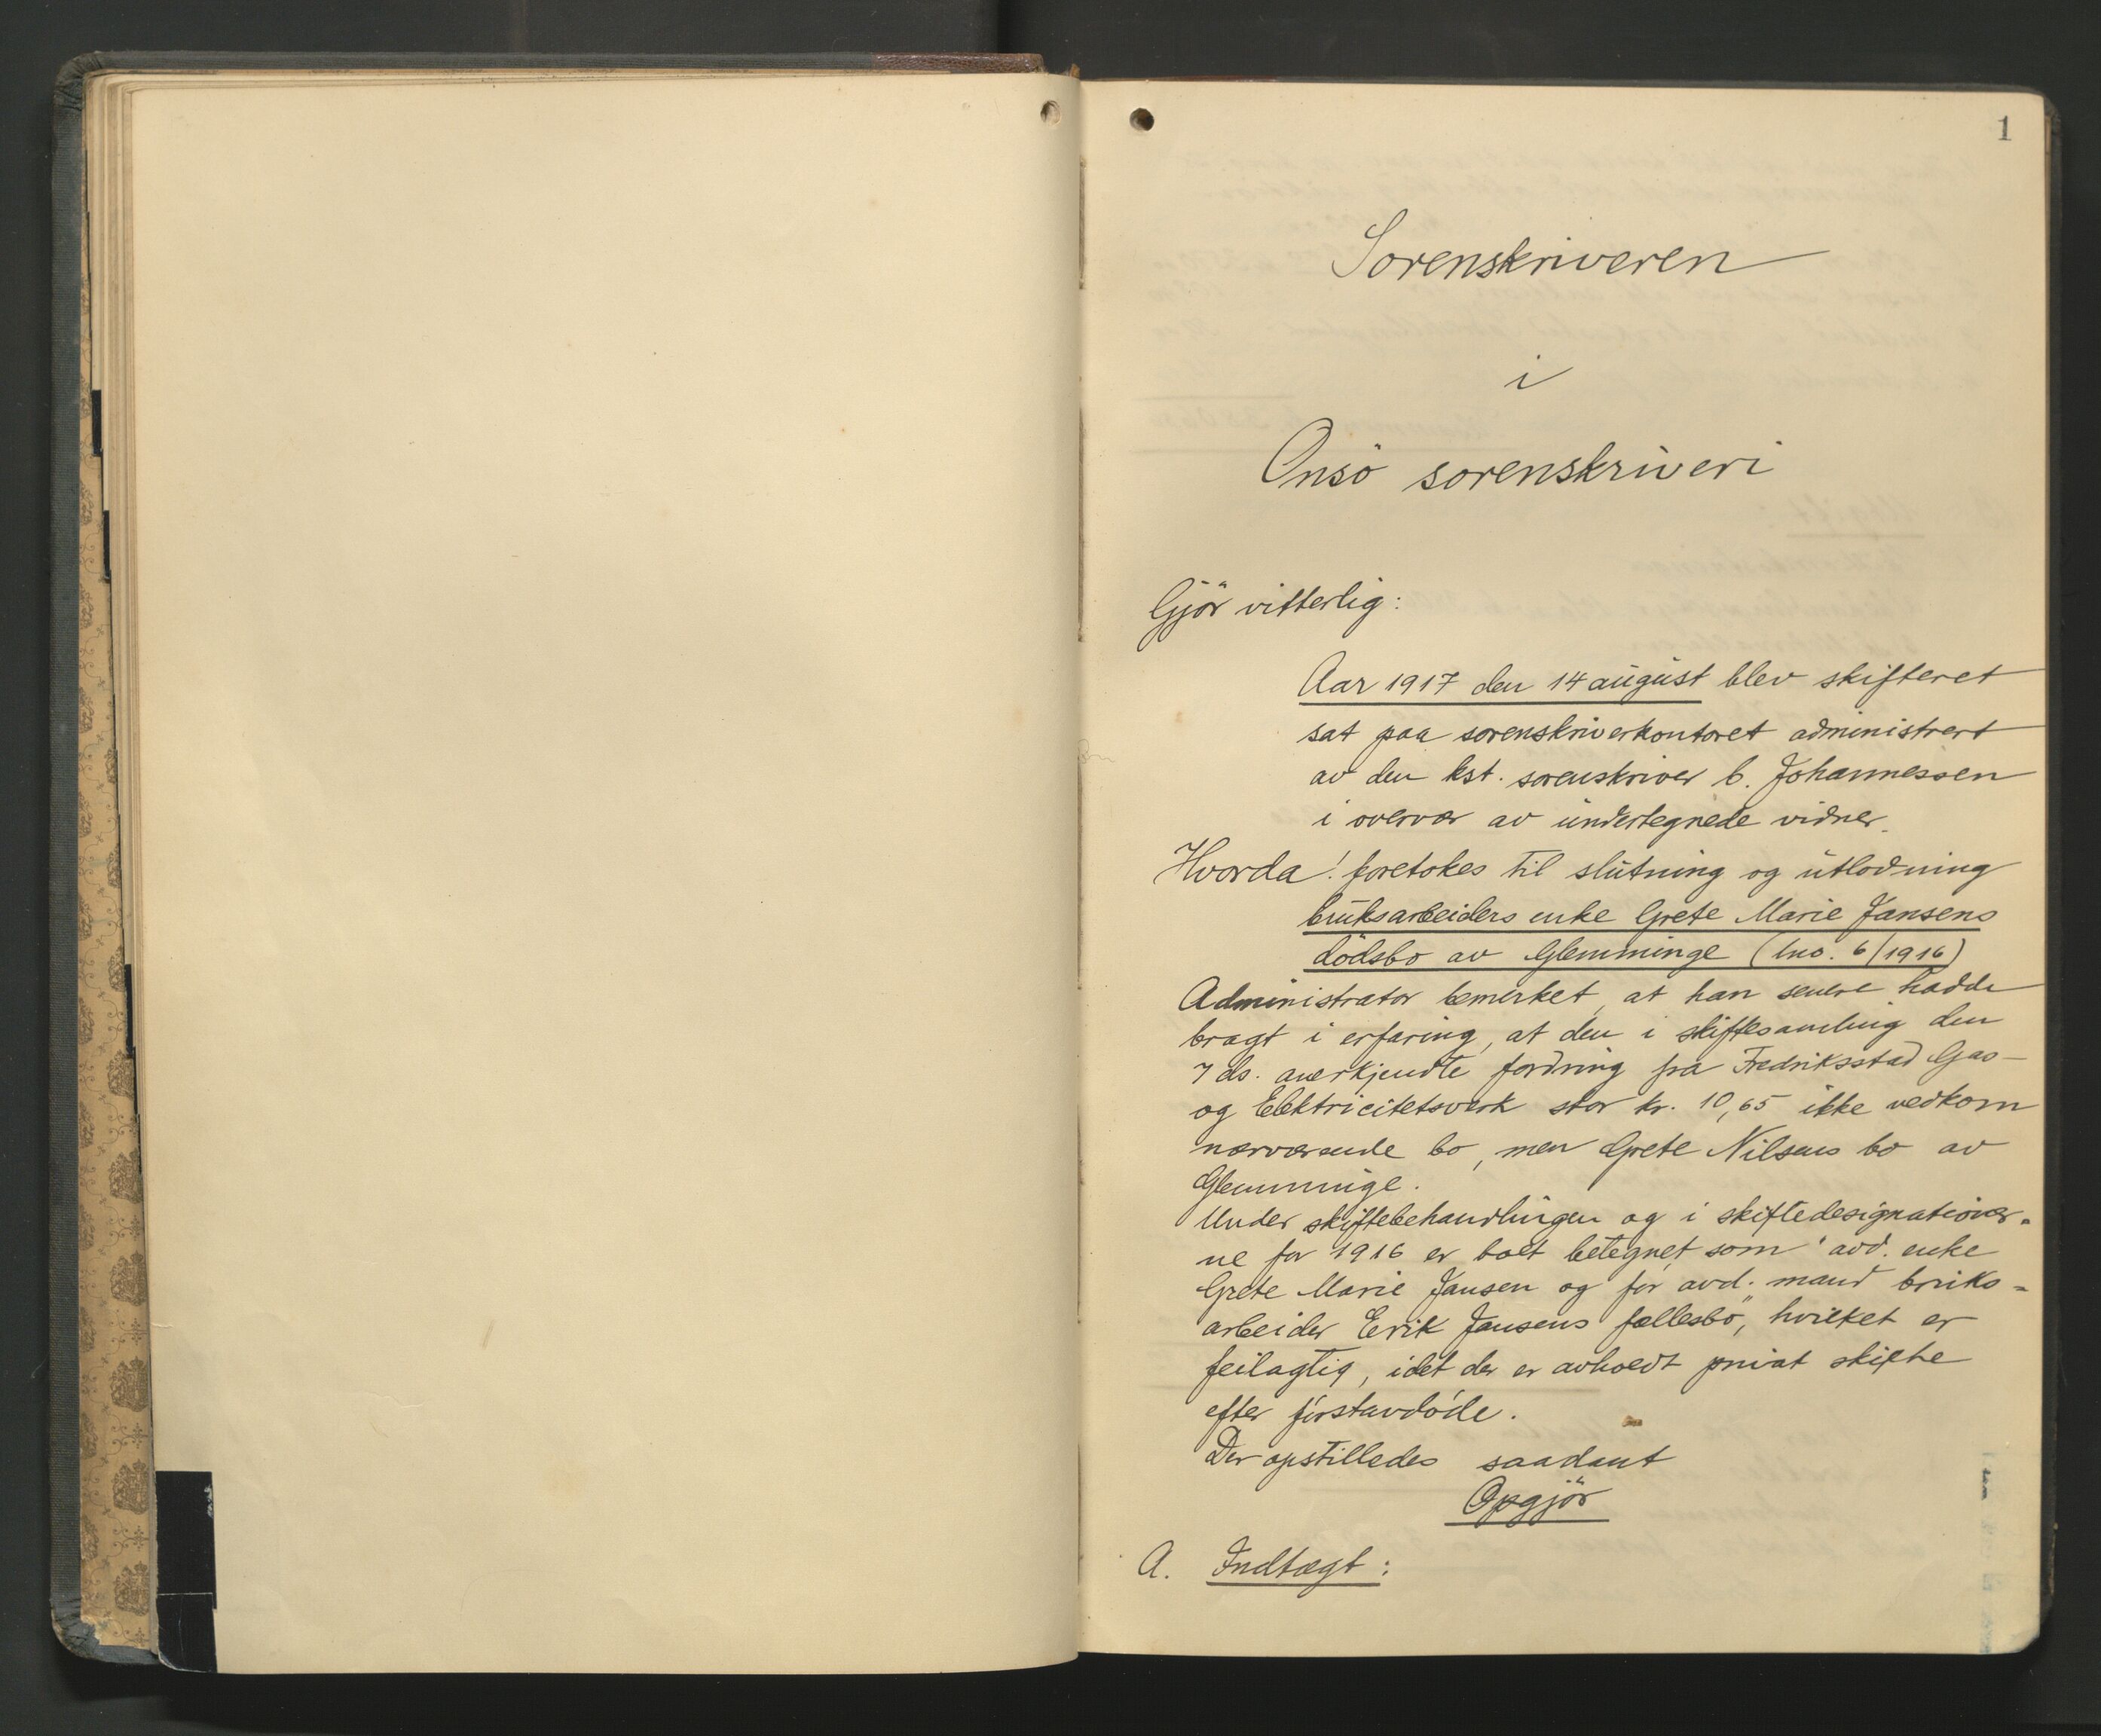 1
Sorenskriveren
i
Onsö sorenskriveri
Gjör vitterlig:
Aar 1917 den 14 august blev skifteret
sat paa sorenskriverkontoret administrert
av den kst. sorenskriver C. Johannessen
i overvær av undertegnede vidner.
Hvorda! foretokes til slutning og utlodning
bruksarbeiders enke Grete Marie Jansens
dödsbo av Glemminge (lno. 6/1916)
Administrator bemerket, at han senere hadde
bragt i erfaring, at den i skiftesamling den
7 ds. anerkjendte fordring fra Fredriksstad Gas-
og Elektricitetsverk stor kr. 10,65 ikke vedkom
nærværende bo, men Grete Nilsens bo av
Glemminge.
Under skiftebehandlingen og i skiftedesignationer-
ne for 1916 er boet betegnet som "avd. enke
Grete Marie Jansen og før avd. mand bruks-
arbeider Erik Jansens fællesbo", hvilket er
feilagtig, idet der er avholdt privat skifte
efter förstavdöde.
Der opstilledes saadant
Opgjör
A. Indtægt: